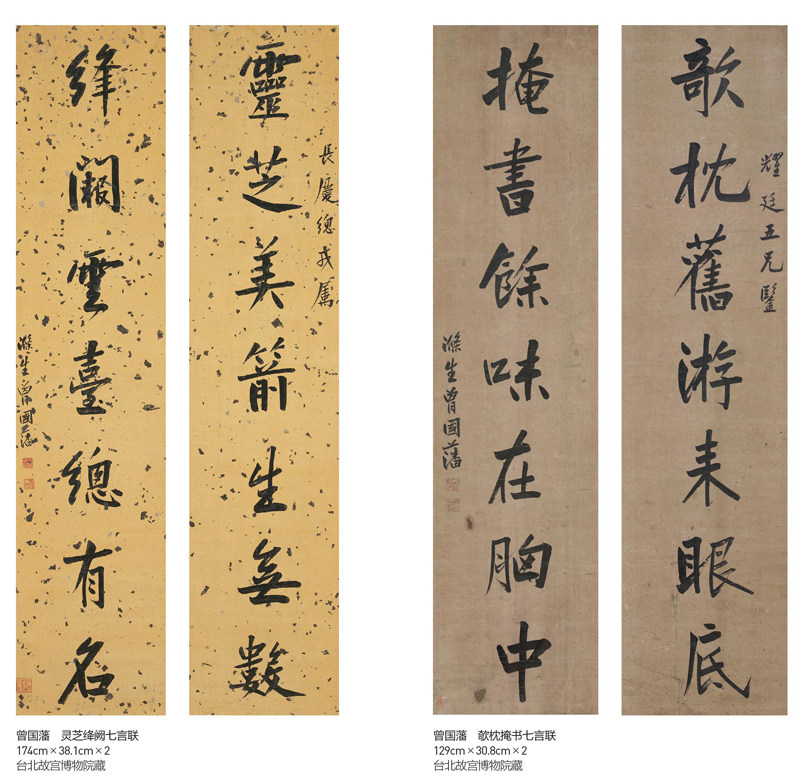 長慶總戎屬
靈芝美箭生無數
絳闕雲臺總有名
滌生曾國藩
曾国藩 灵芝绛阙七言联
174cm×38.1cm×2
台北故宫博物院藏
耀廷五兄鑒
欹枕舊游来眼底
掩書餘味在胸中
滌生曾國藩
曾国藩 欹枕掩书七言联
129cm×30.8cm×2
台北故宫博物院藏